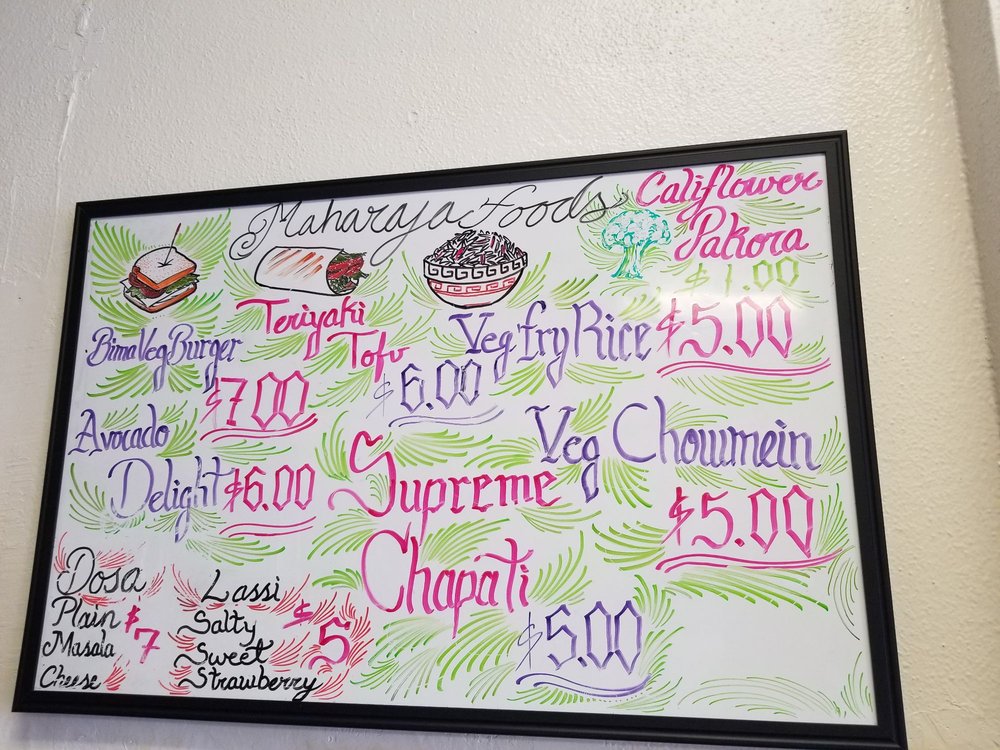 Maharaja Foods
Califlower
Pakora
$1.00
Bima Veg Burger
$7.00
Teriyaki
Tofu
$6.00
Veg fry Rice $5.00
Avocado
Delight $6.00
Supreme
Chapati
$5.00
Veg Chowmein
$5.00
Dosa
Plain
Masala
Cheese
$7
Lassi
Salty
Sweet
Strawberry
$5